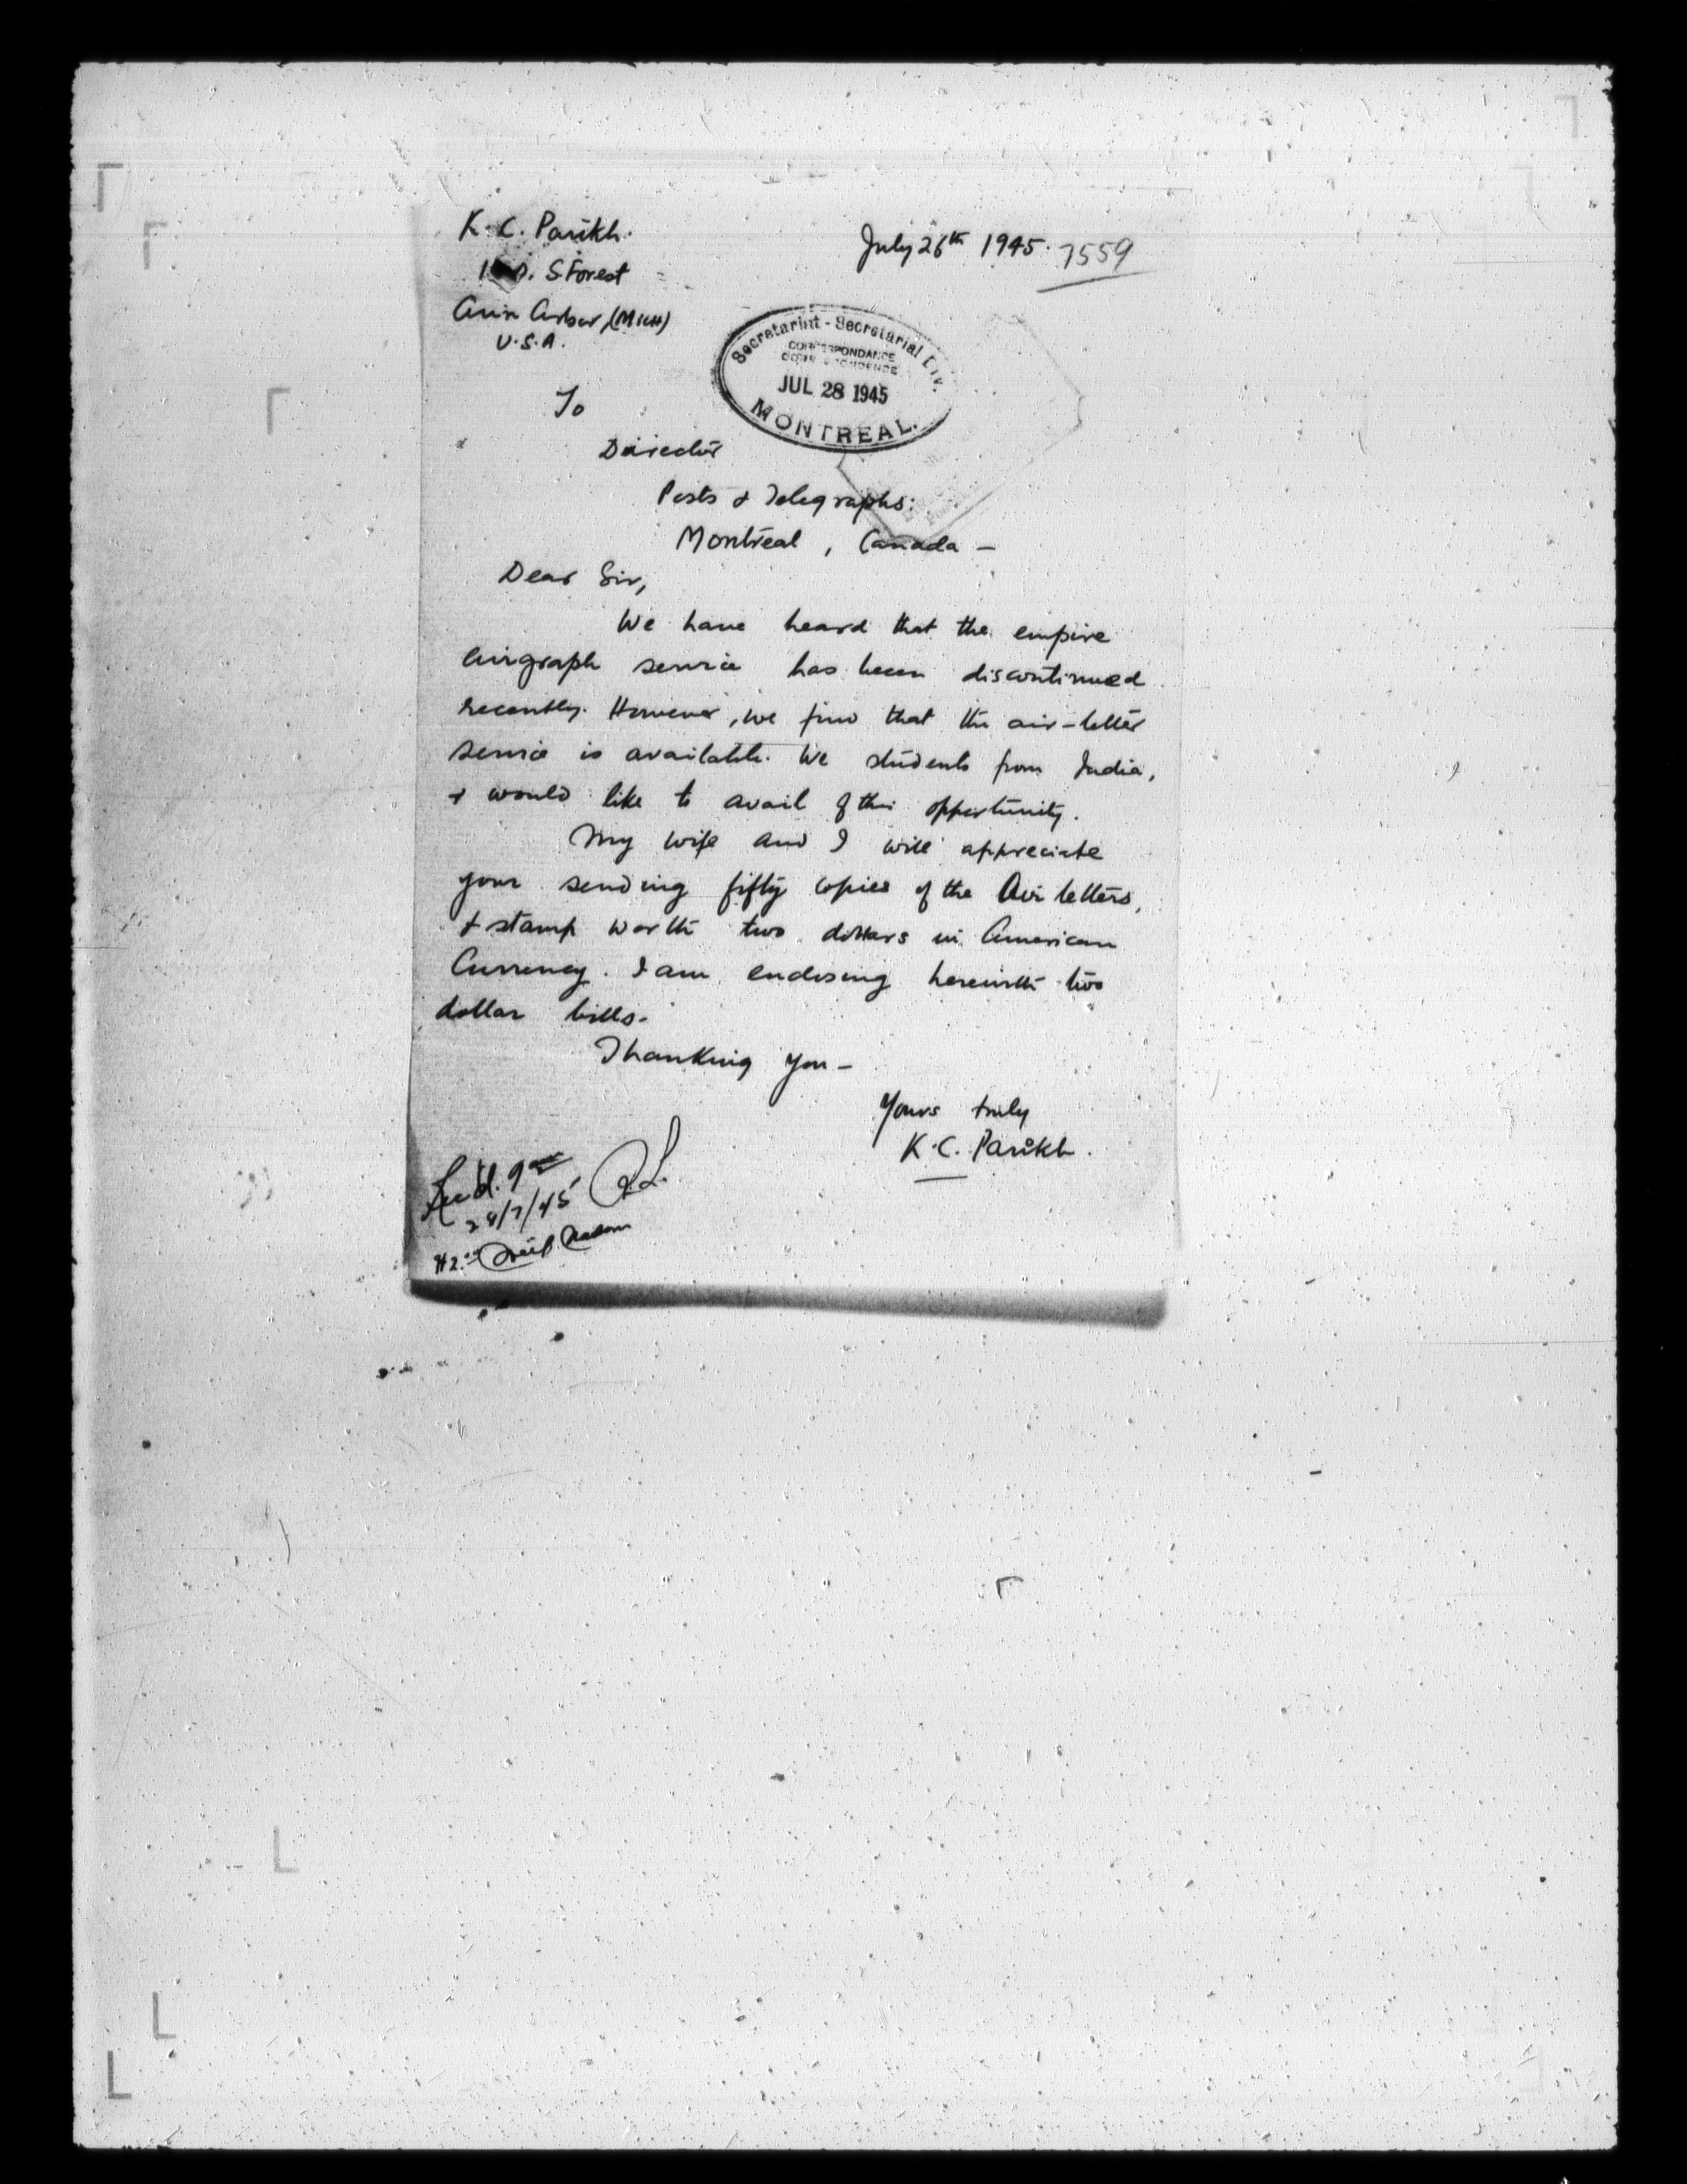 K. C. Parikh.
S Forest
Ann Arbor, (MICH)
U.S.A.
July 26th 1945. 7559
Secretariat - Secretarial Div.
CORRESPONDANCE
CORRESPONDENCE
JUL 28 1945
MONTREAL.
To
Director
Posts & Telegraphs:
Montreal, Canada -
Dear Sir,
We have heard that the empire
airgraph service has been discontinued
recently. However, we find that the air-letter
service is available. We students from India,
& would like to avail of this opportunity.
My wife and I will appreciate
your sending fifty copies of the Air letters,
& stamp worth two dollars in American
Currency. I am enclosing herewith two
dollar bills.
Thanking you -
Yours truly
K.C. Parikh.
28/7/45